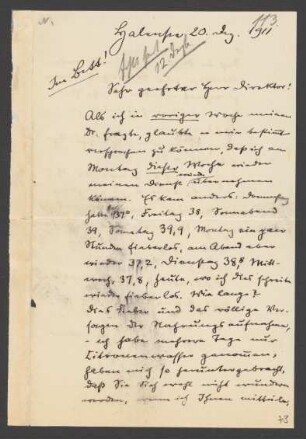 113.
Halensee, 20. Dez. 1911
Im Bett!
Sehr geehrter Herr Direktor!
Als ich in voriger Woche meinen
Dr. fragte, glaubte er mir bestimmt
versprechen zu können, daß ich am
Montag dieser Woche wieder
meinen Dienst würde übernehmen
können. Es kam anders. Donnerstag
hatte ich 37⁰, Freitag 38, Sonnabend
39, Sonntag 39,9, Montag ein paar
Stunden fieberlos, am Abend aber
wieder 37,2, Dienstag 38⁸ Mitt-
woch 37,8, heute, wo ich dies schreibe
wieder fieberlos. Wie lange?
Das Fieber und das völlige Ver-
sagen der Nahrungsaufnahme,
– ich habe mehrere Tage nur
Citronenwasser genommen,
haben mich so heruntergebracht,
daß Sie sich wohl nicht wundern
werden, wenn ich Ihnen mitteile,
73